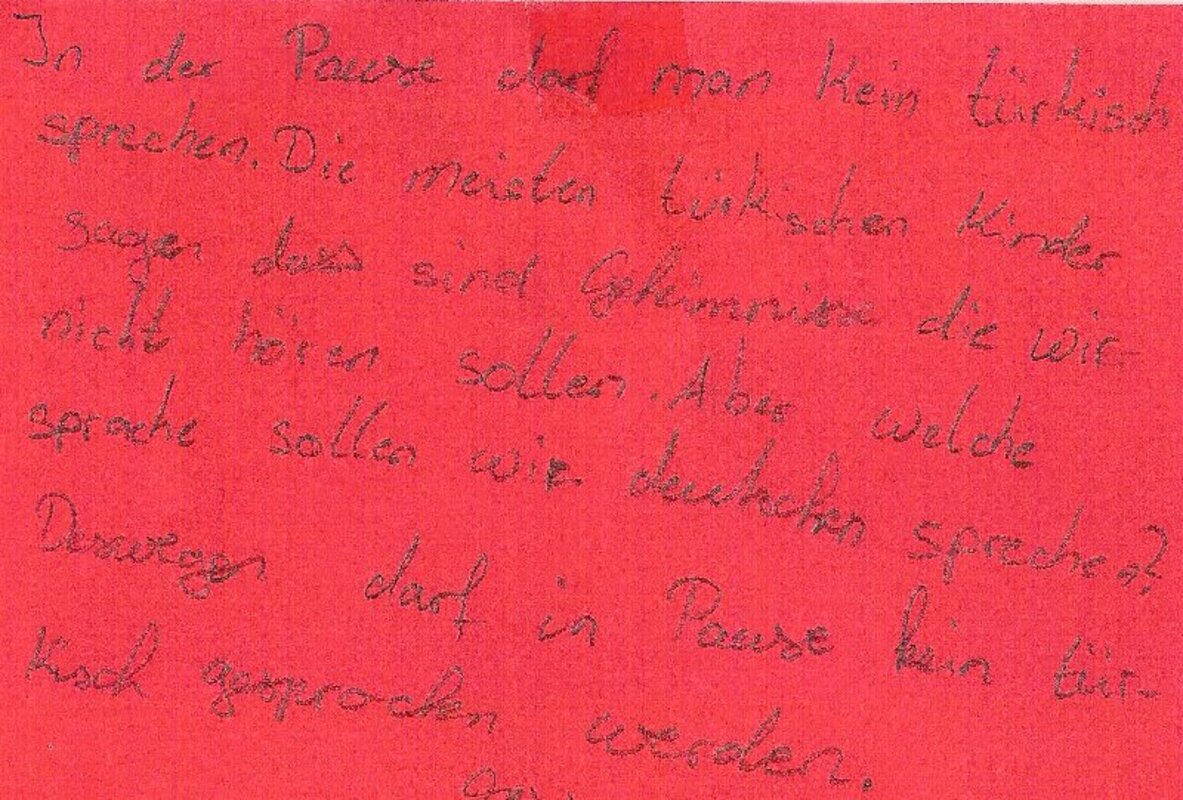 In der Pause darf man kein türkisch
sprechen. Die meisten türkischen Kinder
sagen dass sind Geheimnisse die wir
nicht hören sollen. Aber welche
sprache sollen wir deutschen sprechen?
Deswegen darf in Pause kein tür-
kisch gesprochen werden.